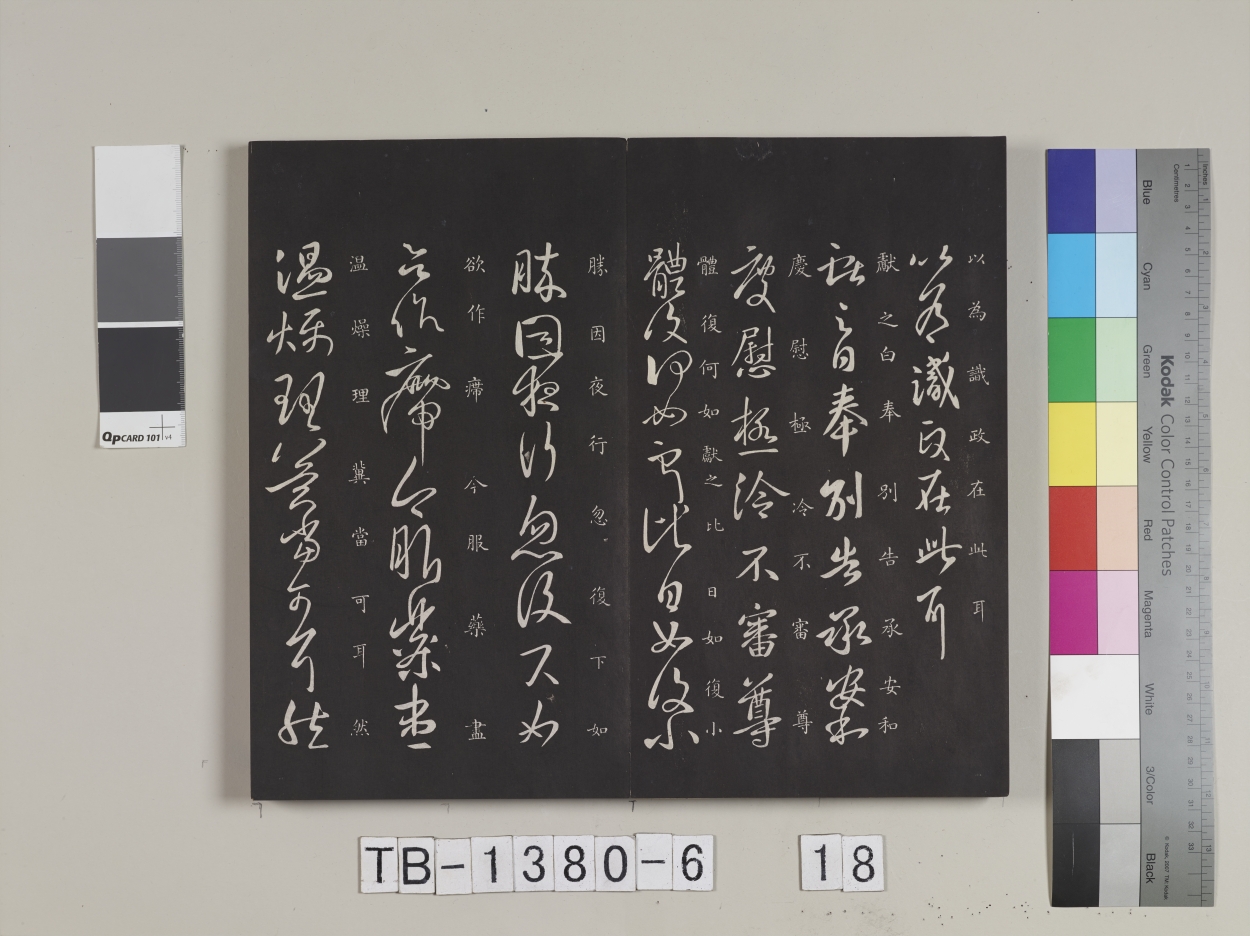 以為識政在此耳
以為識政在此耳
獻之白奉別告承安和
獻之白奉別告承安和
慶慰極冷不審尊
慶慰極冷不審尊
體復何如獻之比日如復小
體復何如獻之比日如復小
勝因夜行忽復下如
勝因夜行忽復下如
欲作㿃今服藥盡
欲作㿃今服藥盡
温燥理冀當可耳然
温燥理冀當可耳然
QPCARD 101 v4
Inches
Centimetres
Kodak Color Control Patches
Blue
Cyan
Green
Yellow
Red
Magenta
White
3/Color
Black
TB-1380-6
18